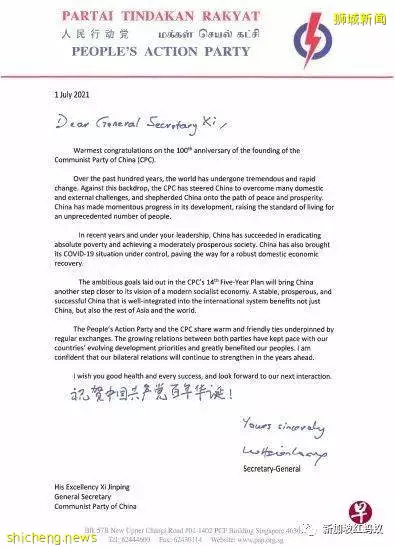 PARTAI TINDAKAN RAKYAT
狮城新闻
人民行动党 மக்கள் செயல் கட்சி
PEOPLE'S ACTION PARTY
1 July 2021
Dear General Secretary Xi,
Warmest congratulations on the 100th anniversary of the founding of the
Communist Party of China (CPC).
Over the past hundred years, the world has undergone tremendous and rapid
change. Against this backdrop, the CPC has steered China to overcome many domestic
and external challenges, and shepherded China onto the path of peace and prosperity.
China has made momentous progress in its development, raising the standard of living for
an unprecedented number of people.
In recent years and under your leadership, China has succeeded in eradicating
absolute poverty and achieving a moderately prosperous society. China has also brought
its COVID-19 situation under control, paving the way for a robust domestic economic
recovery.
The ambitious goals laid out in the CPC's 14th Five-Year Plan will bring China
another step closer to its vision of a modern socialist economy. A stable, prosperous, and
successful China that is well-integrated into the international system benefits not just
China, but also the rest of Asia and the world.
The People's Action Party and the CPC share warm and friendly ties underpinned by
regular exchanges. The growing relations between both parties have kept pace with our
countries' evolving development priorities and greatly benefited our peoples. I am
confident that our bilateral relations will continue to strengthen in the years ahead.
I wish you good health and every success, and look forward to our next interaction.
祝贺中国共产党百年华诞!
Yours sincerely
Secretary-General
His Excellency Xi Jinping
General Secretary
Communist Party of China
早
新加坡红蚂蚁
shicheng.news
Blk 57B New Upper Changi Road #01-1402 PCF Building Singapore
Tel: 62444600 Fax: 62430114 Website: www.pap.org.sg